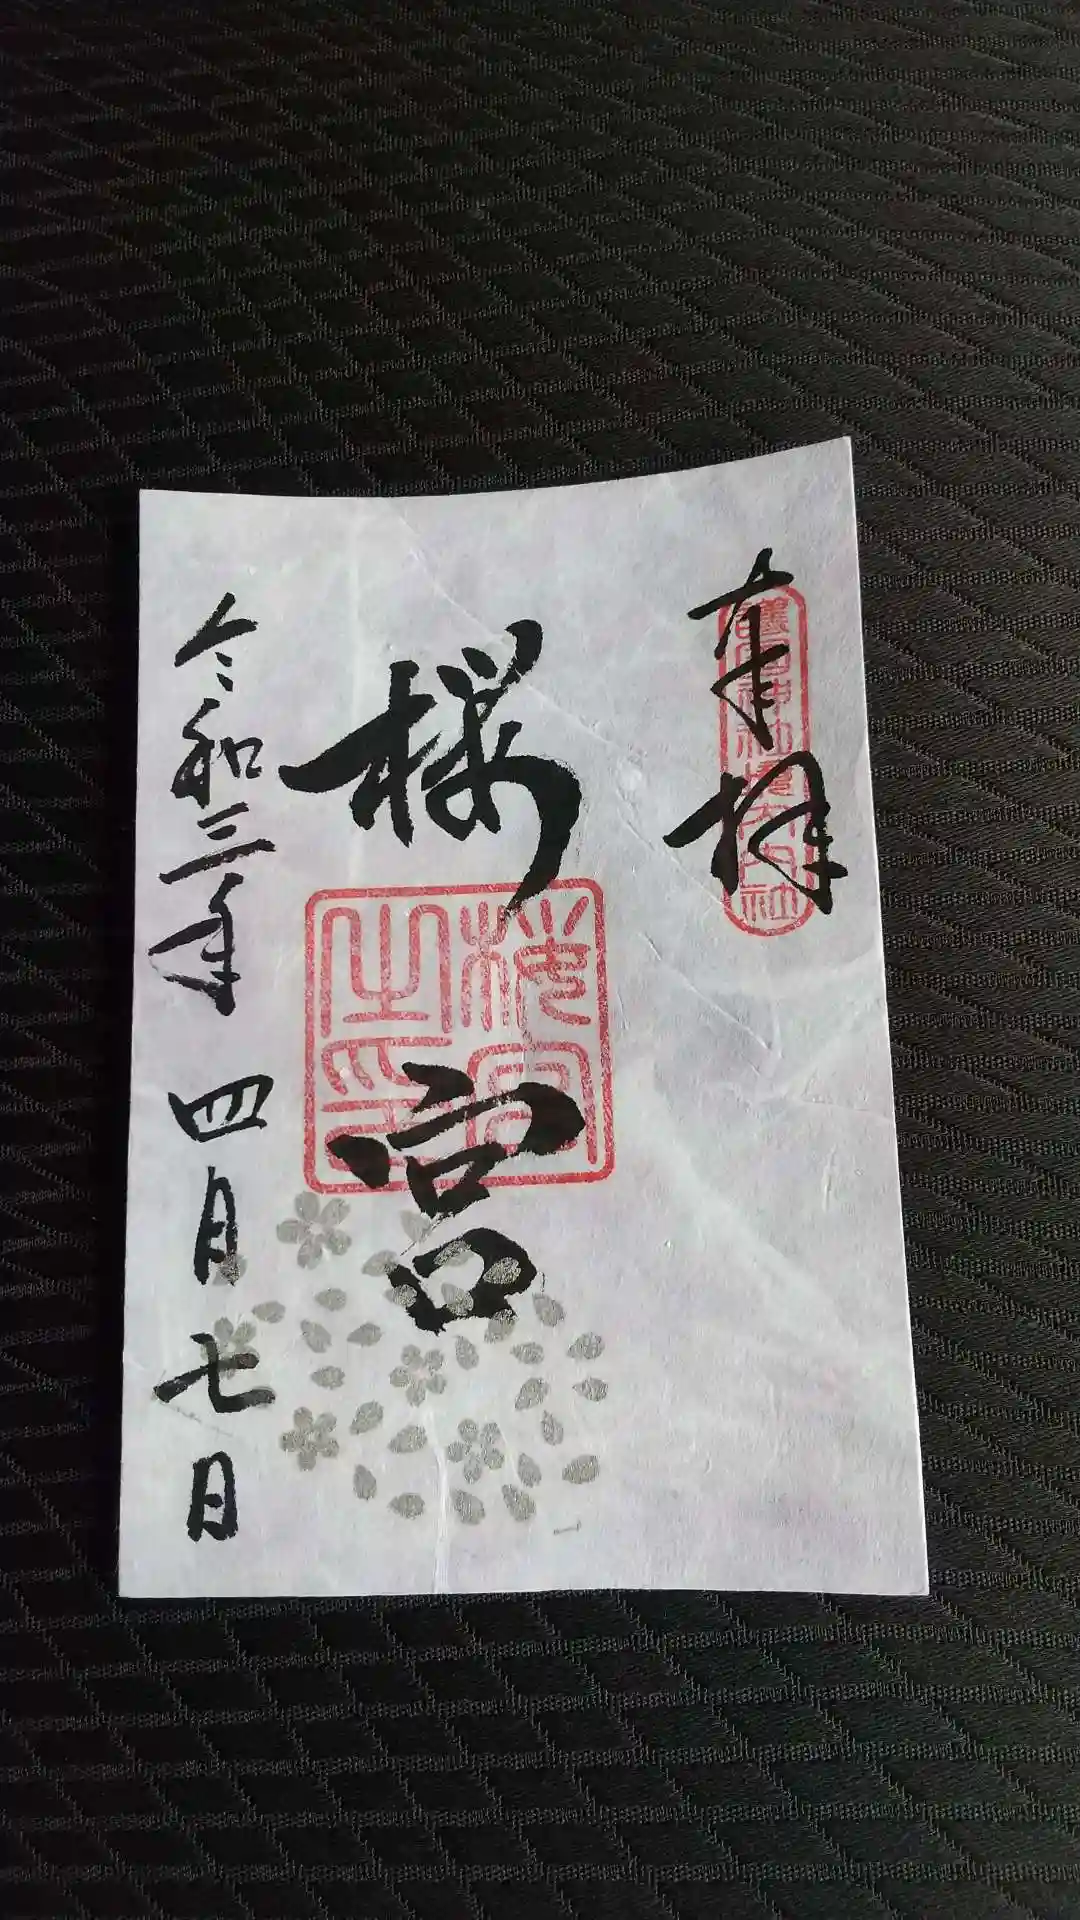 奉拝
桜宮
桜宮之印
令和三年四月七日